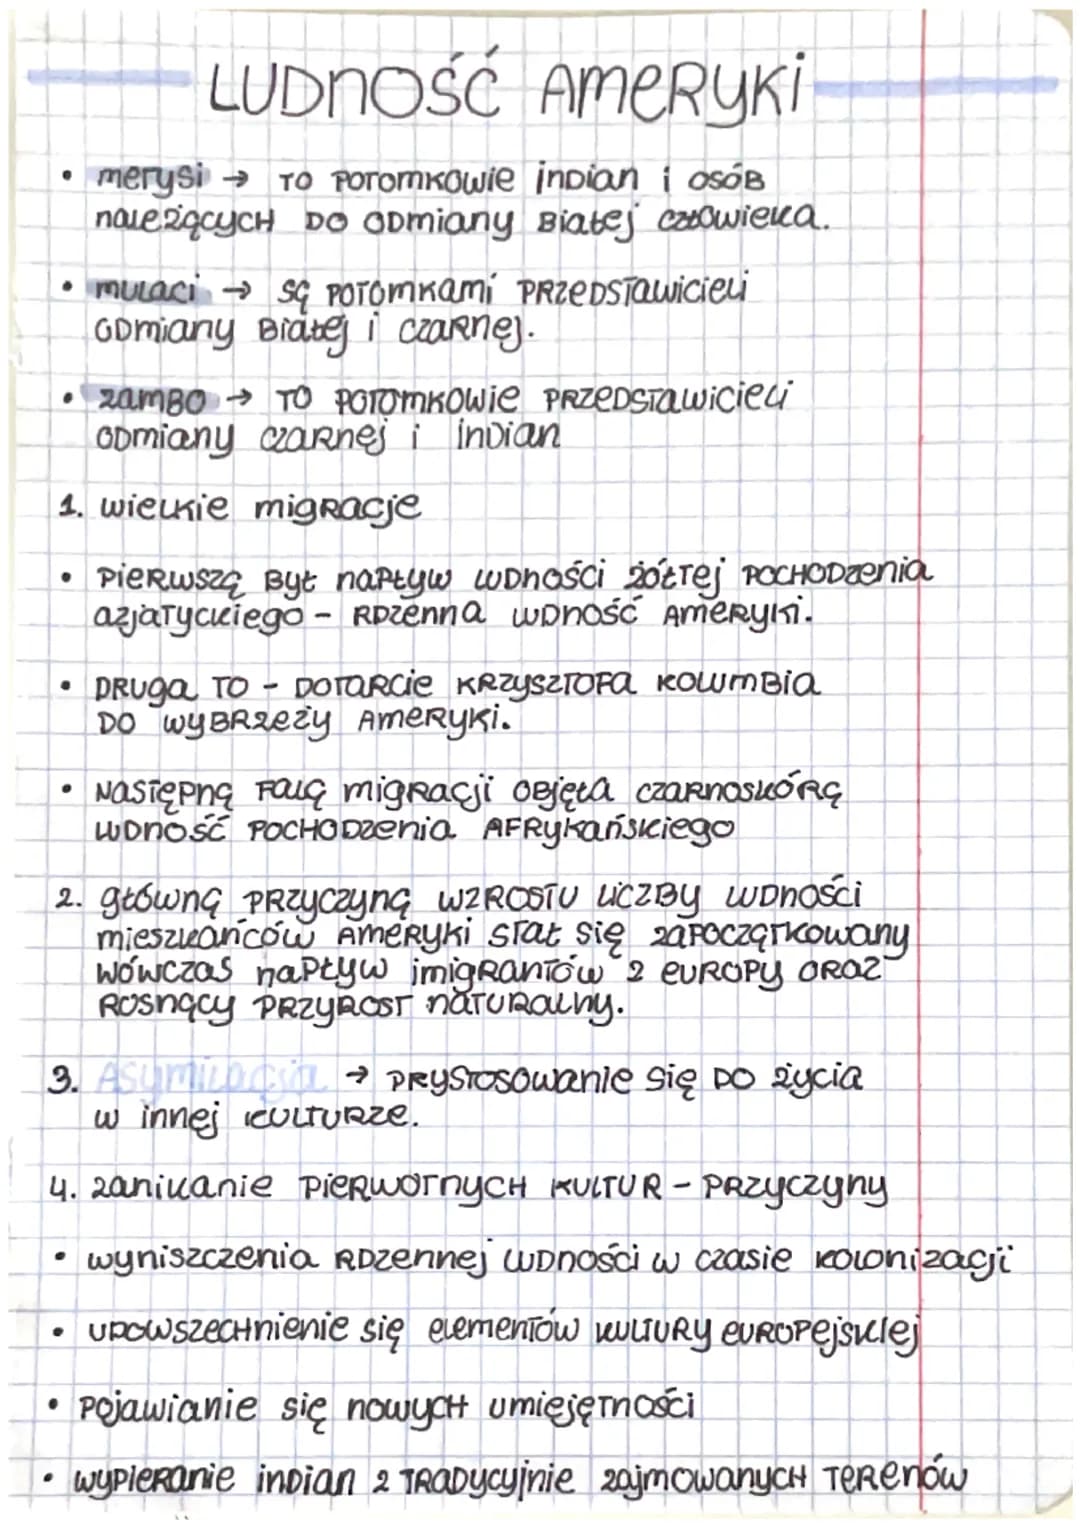 LUDNOŚĆ AMERYKI
• metysi → TO POTOMKOWIE INDIAN i OSÓB
należących DO ODMIANY Białej człowieka.
• mulaci → są POTOMKAMI PRZEDSTAWICIELI
ODMIANY Białej i czarnej.
• ZAMBO → TO POTOMKOWIE PRZEDSTAWICIELI
ODMIANY czarnej i INDIAN
1. wielkie migracje
• Pierwszą był napływ ludności żółtej POCHODZENIA
azjatyckiego - RDZENNA LUDNOŚĆ AMERYKI.
• DRUGA TO - DOTARCIE KRZYSZTOFA KOLUMBIA
DO WYBRZEŻY AMERYKI.
• NASTĘPNĄ FALĄ migracji OBJĘŁA CZARNOSKÓRĄ
LUDNOŚĆ POCHODZENIA AFRYKAŃSKIEGO
2. główną PRZYCZYNĄ WZROSTU LICZBY LUDNOŚCI
mieszkańców AMERYKI STAŁ się ZAPOCZĄTKOWANY
WÓWCZAS napływ imigRANTÓW Z EUROPY ORAZ
ROSNĄCY PRZYROST NATURALNY.
3. Asymilacja → PRYSTOSOWANIE się DO życia
w innej KULTURZE.
4. zanikanie PIERWOTNYCH KULTUR - PRZYCZYNY
• wyniszczenia RDZENNEJ LUDNOŚCI w czasie kolonizacji
• UPOWSZECHNIENIE się elementów KULTURY EUROPEJSKIEJ
• POJAWIANIE się nowych umiejętności
• WYPIERANIE INDIAN Z TRADYCYJNIE zajmowanych TERENÓW